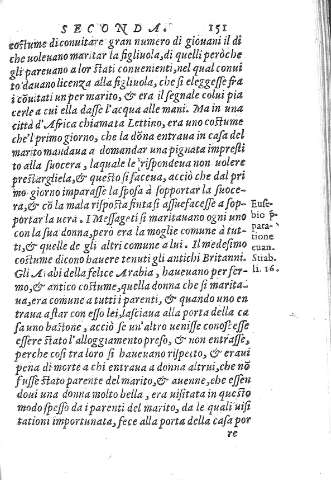 SECONDA. 151
costume di conuitare gran numero di giouani il dì
che uoleuano maritar la figliuola, di quelli però che
gli pareuano a lor stati conuenienti, nel qual conui
to dauano licenza alla figliuola, che si eleggesse fra
i cõuitati un per marito, & era il segnale colui pia
cerle a cui ella dasse l'acqua alle mani. Ma in una
città d'Africa chiamata Lettino, era uno costume
che'l primo giorno, che la dõna entraua in casa del
marito mandaua a domandar una pignata impresti
to alla suocera, laquale le rispondeua non uolere
prestargliela, & questo si faceua, acciò che dal pri
mo giorno imparasse la sposa à sopportar la suoce-
ra, & cõ la mala risposta finta si assuefacesse a sop-
portar la uera. I Messageti si maritauano ogni uno
con la sua donna, però era la moglie comune à tut-
ti, & quelle de gli altri comune a lui. Il medesimo
costume dicono hauere tenuti gli antichi Britanni.
Gli Arabi della felice Arabia, haueuano per fer-
mo, & antico costume, quella donna che si marita-
ua, era comune a tutti i parenti, & quando uno en
traua a star con esso lei, lasciaua alla porta della ca
sa uno bastone, acciò se un'altro uenisse conoscesse
essere stato l'alloggiamento preso, & non entrasse,
perche cosi tra loro si haueuano rispetto, & eraui
pena di morte a chi entraua a donna altrui, che nõ
fusse stato parente del marito, & auenne, che essen
doui una donna molto bella, era uisitata in questo
modo spesso da i parenti del marito, da le quali uisi
tationi importunata, fece alla porta della casa por
re
Euse-
bio p̃
para-
tione
euan.
Strab
li. 16.